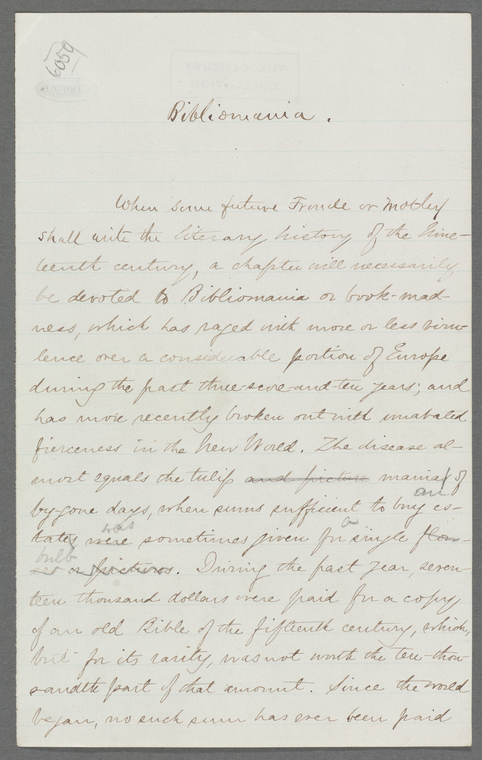 6059
Bibliomania.
When some future Froude or Motley
shall write the literary history of the Nine-
teenth century, a chapter will necessarily
be devoted to Bibliomania or book-mad-
ness, which has raged with more or less viru-
lence over a considerable portion of Europe
during the past three-score-and-ten years; and
has more recently broken out with unabated
fierceness in the New World. The disease al-
most equals the tulip and picture mania of
an
by-gone days, when sums sufficient to buy es-
was a
tates were sometimes given for single flow-
bulb
ers or pictures. During the past year, seven-
teen thousand dollars were paid for a copy
of an old Bible of the fifteenth century, which,
but for its rarity, was not worth the ten-thou-
sandth part of that amount. Since the world
began, no such sum has ever been paid